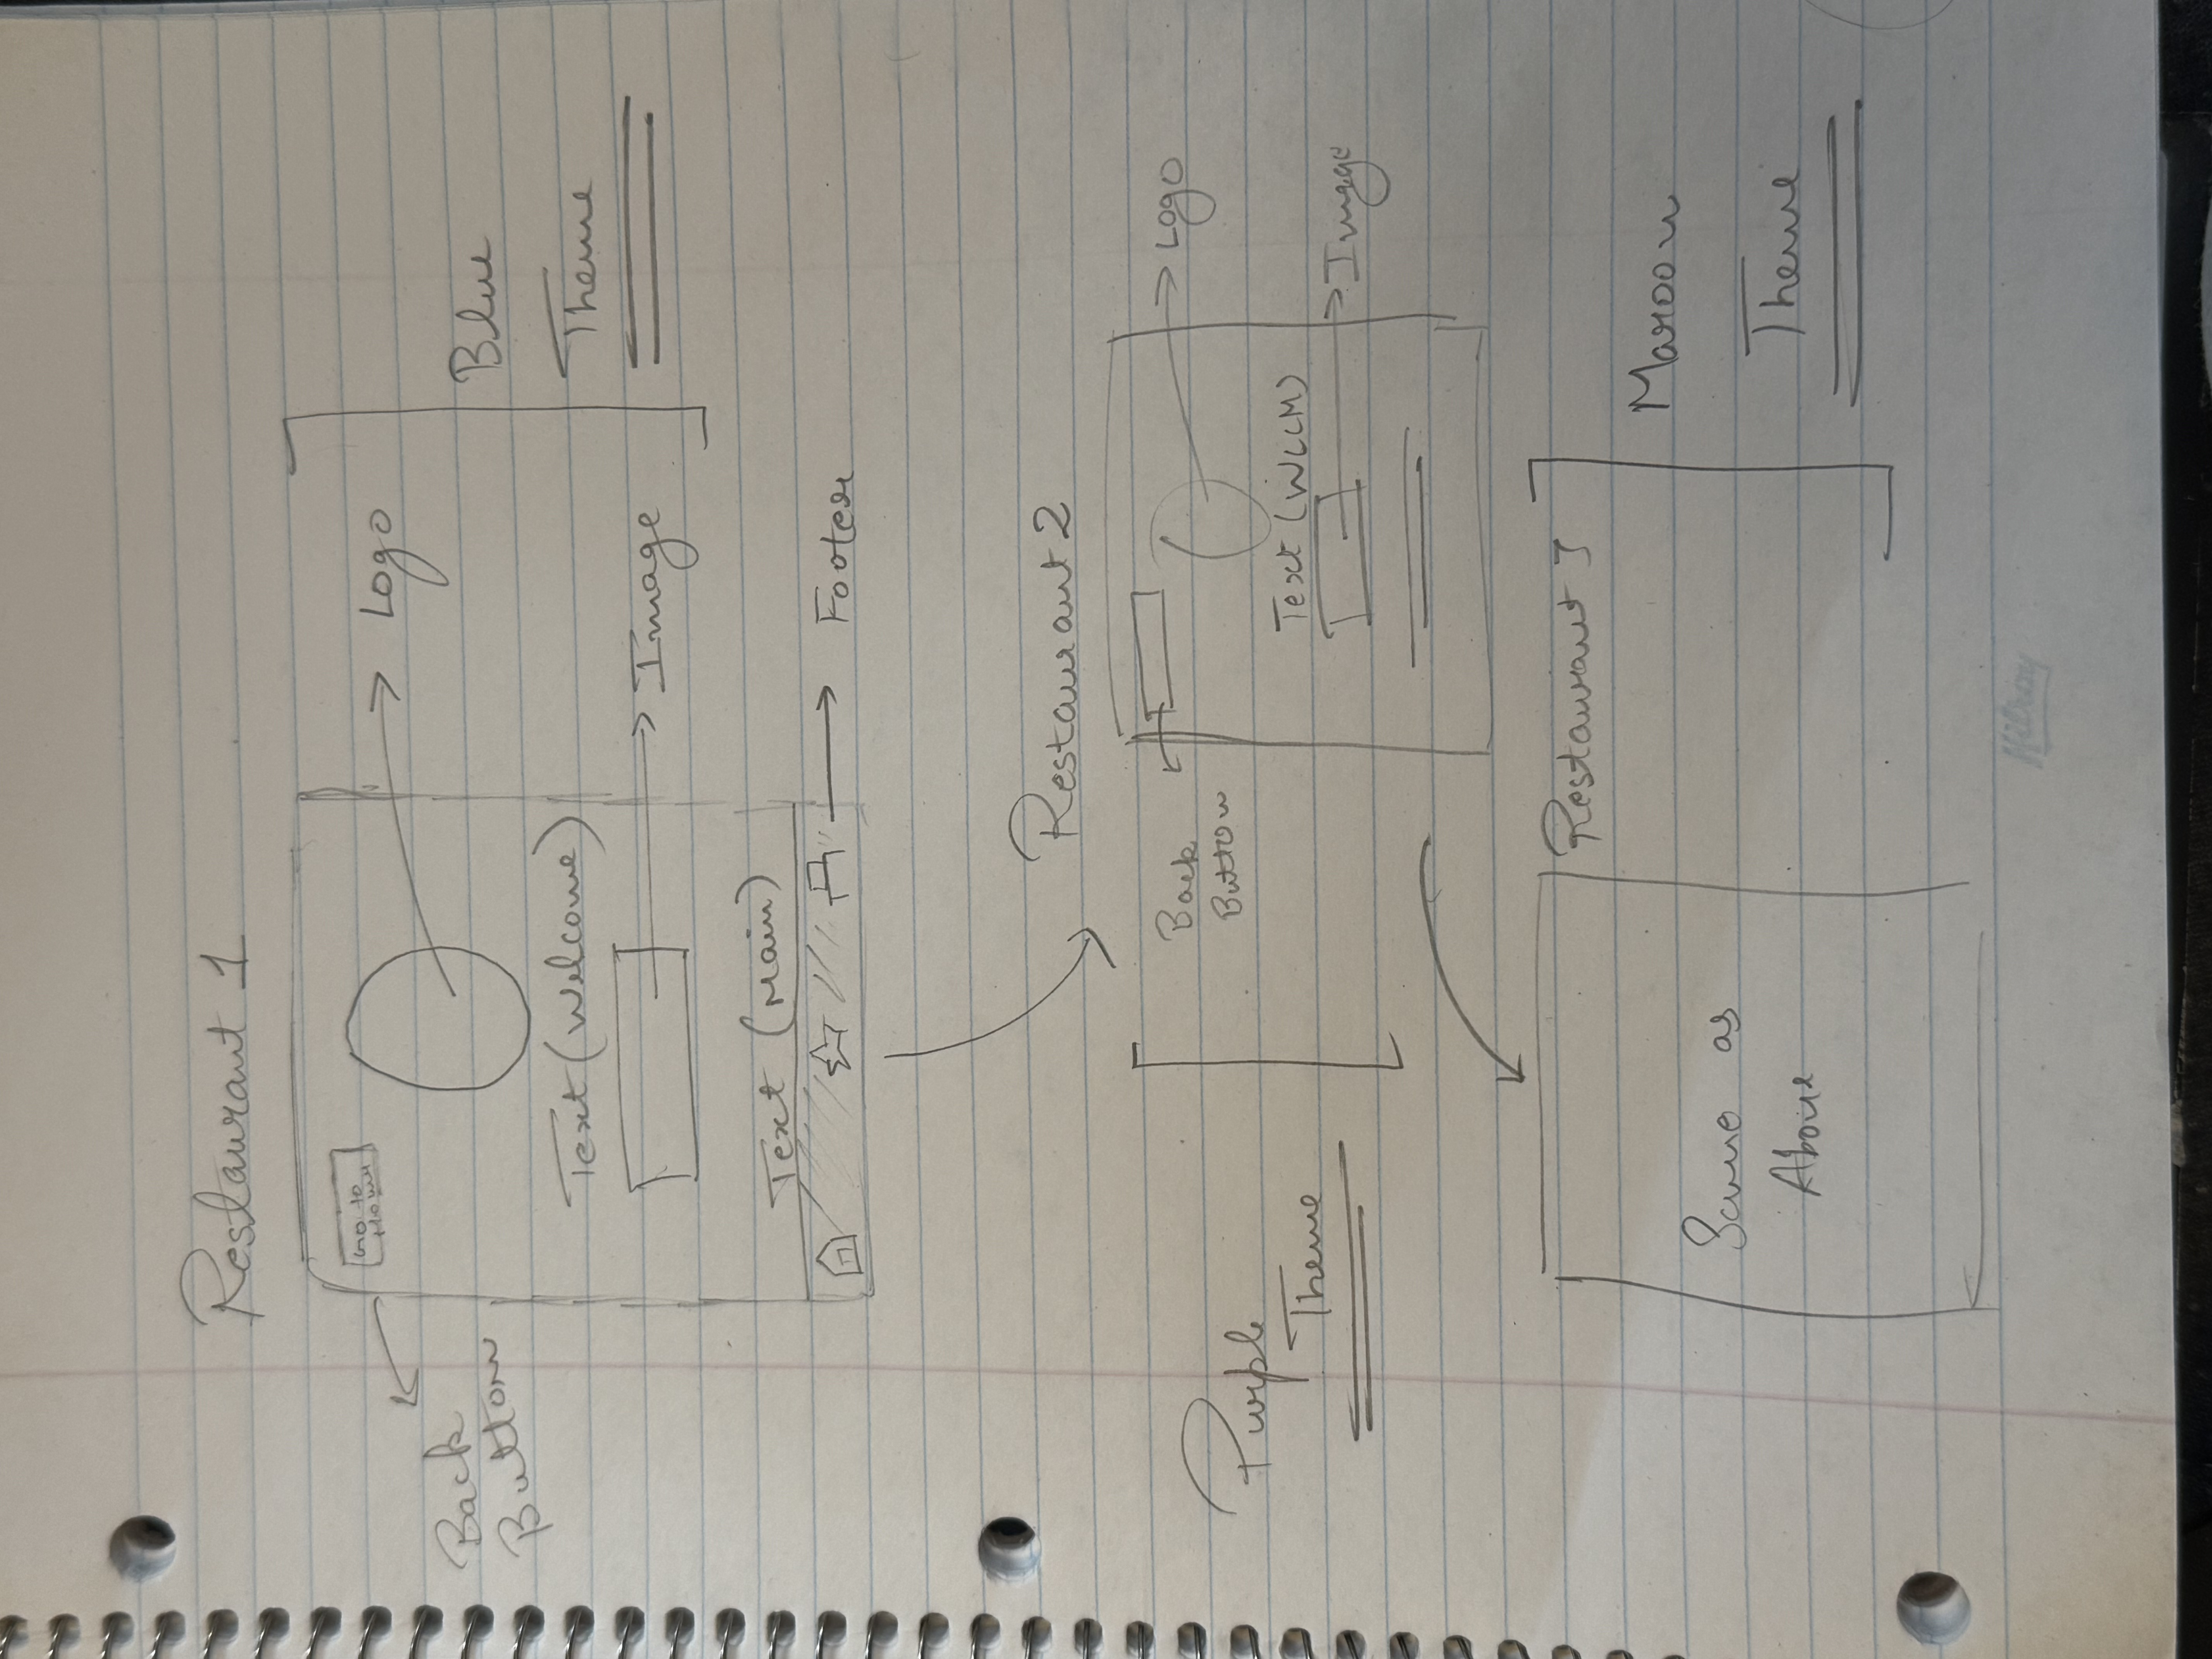 Restaurant 1
Back
Button
Go to
Home
Logo
Text (Welcome)
Image
Text (Main)
Footer
Blue
Theme
Restaurant 2
Purple
Theme
Back
Button
Logo
Text (WLCM)
Image
Restaurant 3
Same as
Above
Maroon
Theme
Hilroy